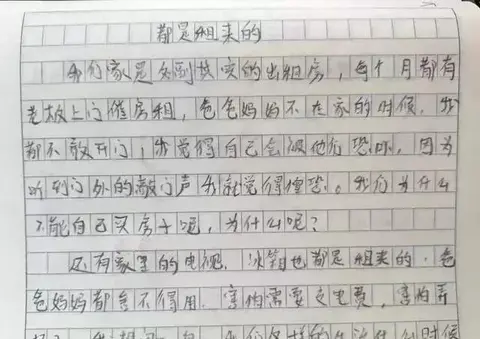 都是租来的
我们家是名副其实的出租房，每个月都有
老板上门催房租，爸爸妈妈不在家的时候，我
都不敢开门，我觉得自己会被他们恐吓，因为
听到门外的敲门声我就觉得惶恐。我们为什么
不能自己买房子呢，为什么呢？
还有家里的电视、冰箱也都是租来的，爸
爸妈妈都舍不得用，害怕需要交电费，害怕弄